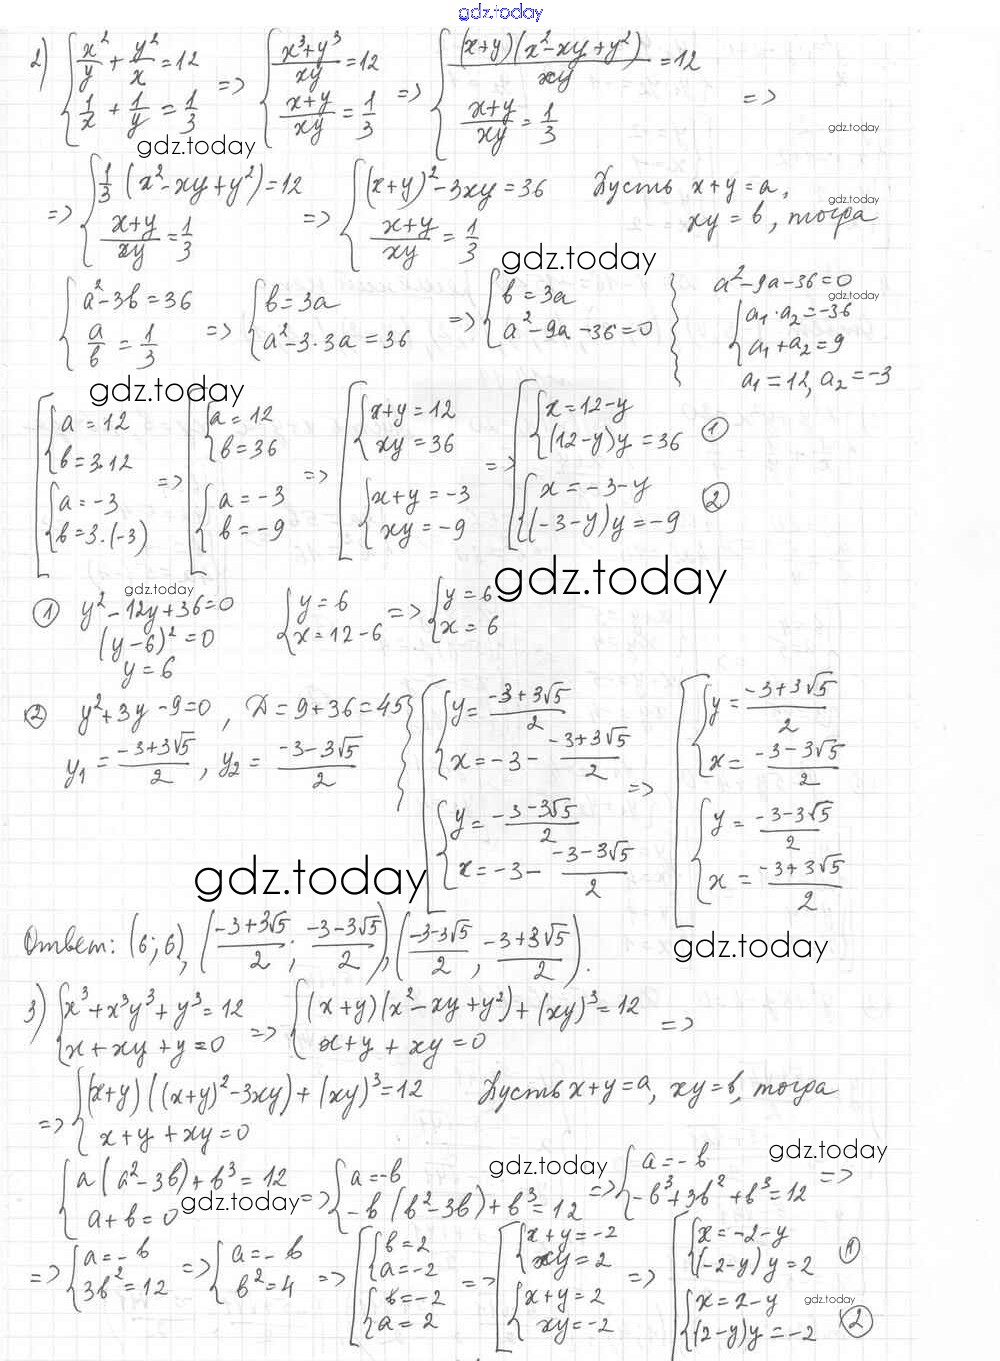 gdz.today
2) { x²/y + y²/x = 12 ; 1/x + 1/y = 1/3 => { (x³+y³)/(xy) = 12 ; (x+y)/(xy) = 1/3 => { (x+y)(x²-xy+y²)/(xy) = 12 ; (x+y)/(xy) = 1/3 =>
gdz.today
gdz.today
=> { 1/3 (x²-xy+y²) = 12 ; (x+y)/(xy) = 1/3 => { (x+y)²-3xy = 36 ; (x+y)/(xy) = 1/3 Пусть x+y=a,
gdz.today
xy = b, тогда
gdz.today
{ a²-3b = 36 ; a/b = 1/3 => { b=3a ; a²-3·3a = 36 => { b=3a ; a²-9a-36=0 } a²-9a-36=0
gdz.today
{ a₁·a₂=-36 ; a₁+a₂=9
a₁=12, a₂=-3
gdz.today
[ { a=12 ; b=3·12 ; { a=-3 ; b=3·(-3) => [ { a=12 ; b=36 ; { a=-3 ; b=-9 => [ { x+y=12 ; xy=36 ; { x+y=-3 ; xy=-9 => [ { x=12-y ; (12-y)y=36 ① ; { x=-3-y ; (-3-y)y=-9 ②
gdz.today
gdz.today
① y²-12y+36=0 { y=6 ; x=12-6 => { y=6 ; x=6
(y-6)²=0
y=6
② y²+3y-9=0, D=9+36=45 } [ { y=(-3+3√5)/2 ; x=-3-(-3+3√5)/2 ; { y=(-3-3√5)/2 ; x=-3-(-3-3√5)/2 => [ { y=(-3+3√5)/2 ; x=(-3-3√5)/2 ; { y=(-3-3√5)/2 ; x=(-3+3√5)/2
y₁=(-3+3√5)/2, y₂=(-3-3√5)/2
gdz.today
gdz.today
Ответ: (6;6), ((-3+3√5)/2; (-3-3√5)/2), ((-3-3√5)/2, (-3+3√5)/2).
3) { x³+x³y³+y³=12 ; x+xy+y=0 => { (x+y)(x²-xy+y²)+(xy)³=12 ; x+y+xy=0 =>
=> { (x+y)((x+y)²-3xy)+(xy)³=12 ; x+y+xy=0 Пусть x+y=a, xy=b, тогда
gdz.today
gdz.today
{ a(a²-3b)+b³=12 ; a+b=0 => { a=-b ; -b(b²-3b)+b³=12 => { a=-b ; -b³+3b²+b³=12 =>
gdz.today
=> { a=-b ; 3b²=12 => { a=-b ; b²=4 => [ { b=2 ; a=-2 ; { b=-2 ; a=2 => [ { x+y=-2 ; xy=2 ; { x+y=2 ; xy=-2 => [ { x=-2-y ; (-2-y)y=2 ① ; { x=2-y ; (2-y)y=-2 ②
gdz.today